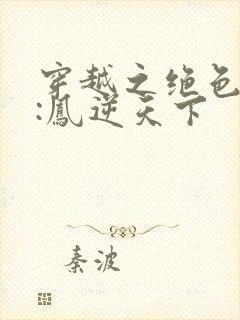 穿越之绝色
:凰逆天下
秦波